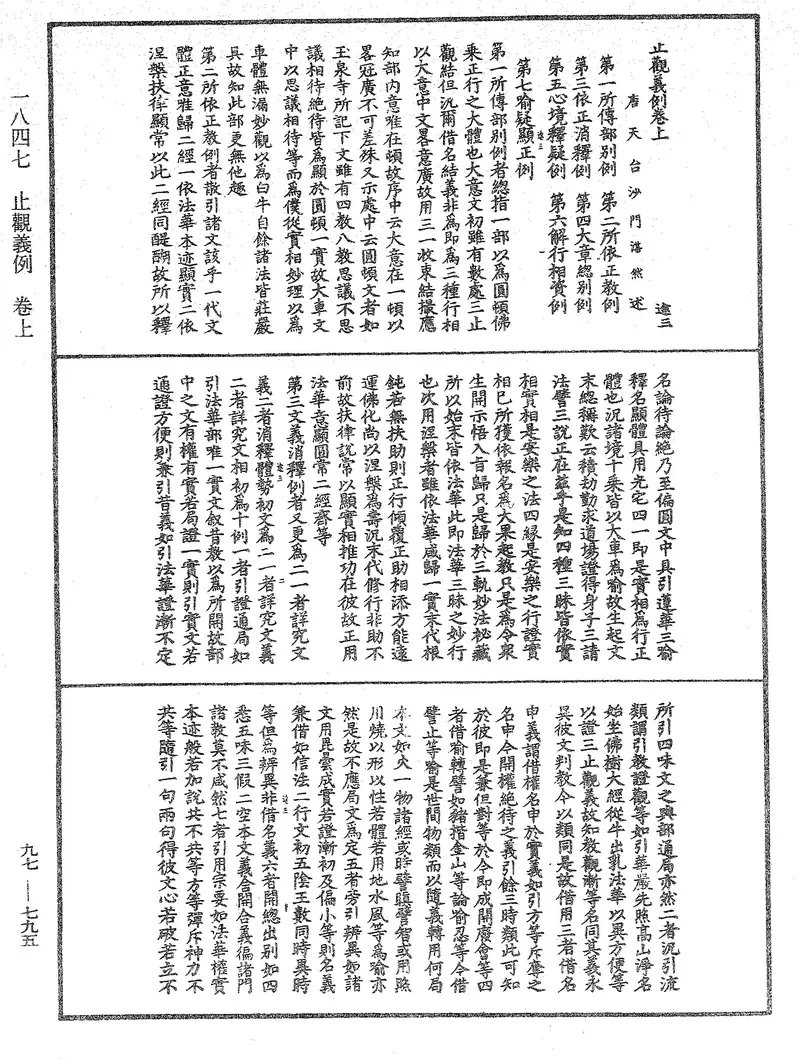 止觀義例卷上
唐天台沙門湛然述 途三
第一所傳部別例 第二所依正教例
第三依正消釋例 第四大章總別例
第五心境釋疑例 第六解行相資例
第七喻疑顯正例
第一所傳部別例者總指一部以為圓頓佛
乘正行之大體也大意文初雖有數處三止
觀結但況爾借名結義非為即為三種行相
以大意中文畧意廣故用三一收束結撮應
知部內意唯在頓故序中云大意在一頓以
畧冠廣不可差殊又示處中云圓頓文者如
玉泉寺所記下文雖有四教八教思議不思
議相待絕待皆為顯於圓頓一實故大車文
中以思議相待等而為僕從實相妙理以為
車體無漏妙觀以為白牛自餘諸法皆莊嚴
具故知此部更無他趣
第二所依正教例者散引諸文該乎一代文
體正意唯歸二經一依法華本迹顯實二依
涅槃扶律顯常以此二經同醍醐故所以釋
名論待論絕乃至偏圓文中具引蓮華三喻
釋名顯體具用光宅四一即是實相為行正
體也況諸境十乘皆以大車為喻故生起文
末總稱歎云積劫勤求道場證得身子三請
法譬三說正在茲乎是知四種三昧皆依實
相實相是安樂之法四緣是安樂之行證實
相已所獲依報名為大果起教只是為令衆
生開示悟入旨歸只是歸於三軌妙法祕藏
所以始末皆依法華此即法華三昧之妙行
也次用涅槃者雖依法華咸歸一實末代根
鈍若無扶助則正行傾覆正助相添方能遠
運佛化尚以涅槃為壽況末代修行非助不
前故扶律說常以顯實相推功在彼故正用
法華意顯圓常二經齊等
第三文義消釋例者又更為二一者詳究文
義二者消釋體勢初文為二一者詳究文義
二者詳究文相初為十例一者引證通局如
引法華部唯一實文叙昔教以為所開故部
中之文有權有實若局證一實則引實文若
通證方便則兼引昔義如引法華證漸不定
所引四味文之與部通局亦然二者況引流
類謂引教證觀等如引華嚴先照高山淨名
始坐佛樹大經從牛出乳法華以異方便等
以證三止觀義故知教觀漸等名同其義永
異彼文判教今以類同是故借用三者借名
申義謂借權名申於實義如引方等斥奪之
名申今開權絕待之義引餘三時類此可知
於彼即是兼但對等於今即成開廢會等四
者借喻轉譬如豬揩金山等論喻忍等今借
譬止等喻是世間物類而以隨義轉用何局
本文如火一物諸經或時譬瞋譬智或用照
川燒以形以性若體若用地水風等為喻亦
然是故不應局文為定五者旁引辨異如諸
文用毘曇成實若證漸初及偏小等則名義
兼借如信法二行文初五陰王數同時異時
等但為辨異非借名義六者開總出別如四
悉五味三假二空本文義含開合義徧諸門
諸教莫不咸然七者引用宗要如法華權實
本迹般若加說共不共等方等彈斥神力不
共等隨引一句兩句得彼文心若破若立不
一八四七 止觀義例 卷上
九七 — 七九五